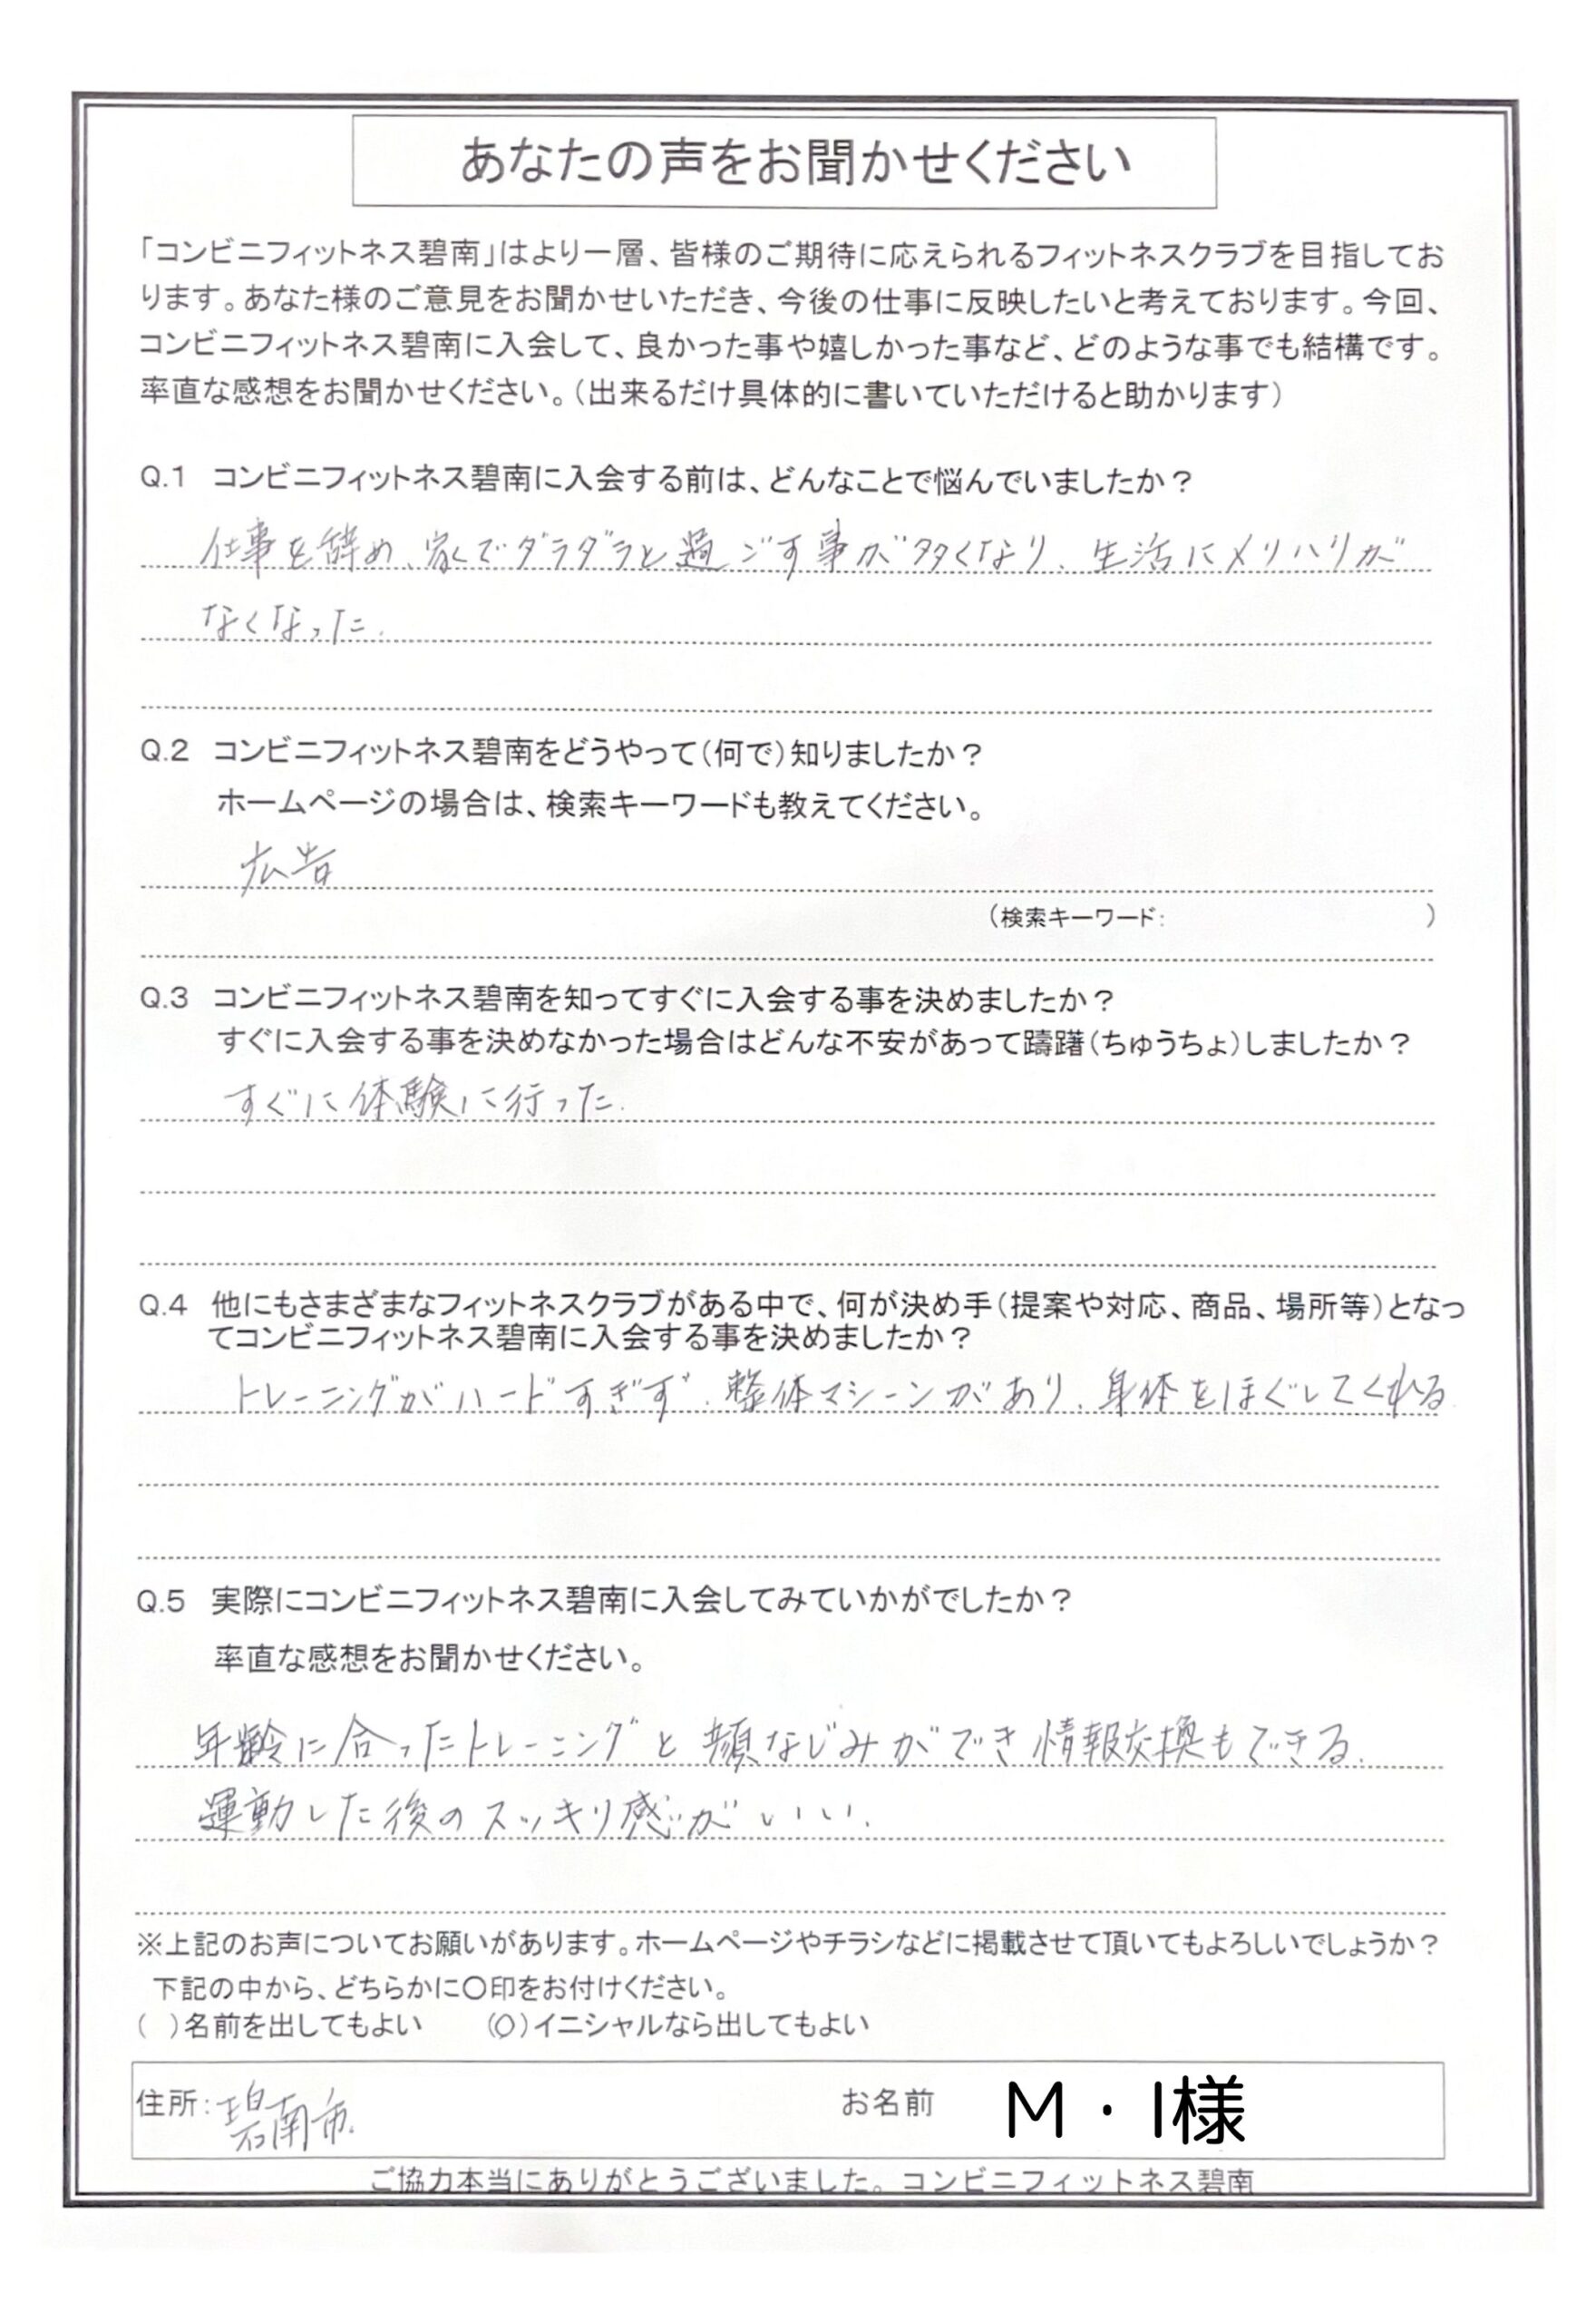 あなたの声をお聞かせください
「コンビニフィットネス碧南」はより一層、皆様のご期待に応えられるフィットネスクラブを目指してお
ります。あなた様のご意見をお聞かせいただき、今後の仕事に反映したいと考えております。今回、
コンビニフィットネス碧南に入会して、良かった事や嬉しかった事など、どのような事でも結構です。
率直な感想をお聞かせください。(出来るだけ具体的に書いていただけると助かります)
Q.1 コンビニフィットネス碧南に入会する前は、どんなことで悩んでいましたか？
仕事を辞め、家でダラダラと過ごす事が多くなり、生活にメリハリが
なくなった。
Q.2 コンビニフィットネス碧南をどうやって(何で)知りましたか？
ホームページの場合は、検索キーワードも教えてください。
広告
(検索キーワード: )
Q.3 コンビニフィットネス碧南を知ってすぐに入会する事を決めましたか？
すぐに入会する事を決めなかった場合はどんな不安があって躊躇(ちゅうちょ)しましたか？
すぐに体験に行った。
Q.4 他にもさまざまなフィットネスクラブがある中で、何が決め手(提案や対応、商品、場所等)となっ
てコンビニフィットネス碧南に入会する事を決めましたか？
トレーニングがハードすぎず、整体マシーンがあり、身体をほぐしてくれる
Q.5 実際にコンビニフィットネス碧南に入会してみていかがでしたか？
率直な感想をお聞かせください。
年齢に合ったトレーニングと顔なじみができ情報交換もできる。
運動した後のスッキリ感がいい。
※上記のお声についてお願いがあります。ホームページやチラシなどに掲載させて頂いてもよろしいでしょうか？
下記の中から、どちらかに〇印をお付けください。
( )名前を出してもよい (〇)イニシャルなら出してもよい
住所:碧南市 お名前 M・I様
ご協力本当にありがとうございました。コンビニフィットネス碧南